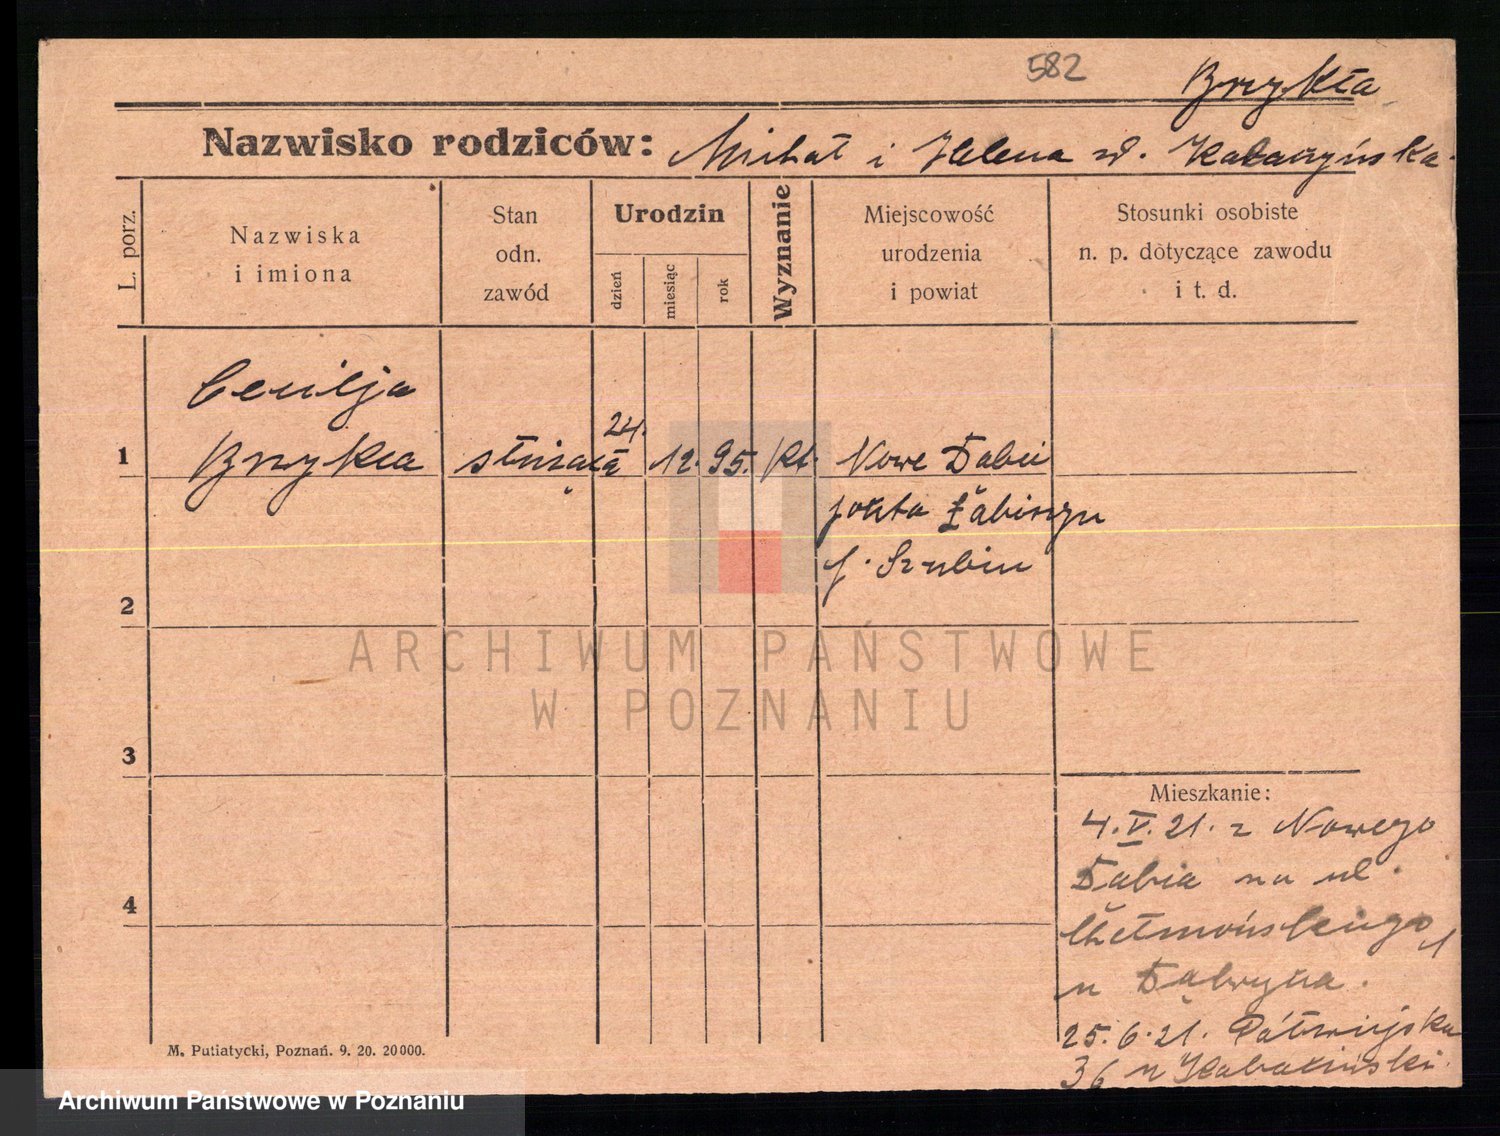 582
Brzykła
Nazwisko rodziców: Michał i Helena zd. Kabacyńska.
L. porz.
Nazwiska
i imiona
Stan
odn.
zawód
Urodzin
dzień
miesiąc
rok
Wyznanie
Miejscowość
urodzenia
i powiat
Stosunki osobiste
n. p. dotyczące zawodu
i t. d.
Cecilja
1 Brzykła służąca 24. 12. 95. kt. Nowe Dąbie
poczta Łabiszyn
p. Szubin
2
ARCHIWUM PAŃSTWOWE
W POZNANIU
3
Mieszkanie:
4. V. 21. z Nowego
Dąbia na ul.
4
Chełmońskiego 1
u Dąbryna.
25. 6. 21. Półwiejska
36 u Kabaciński.
M. Putiatycki, Poznań. 9. 20. 20000.
Archiwum Państwowe w Poznaniu